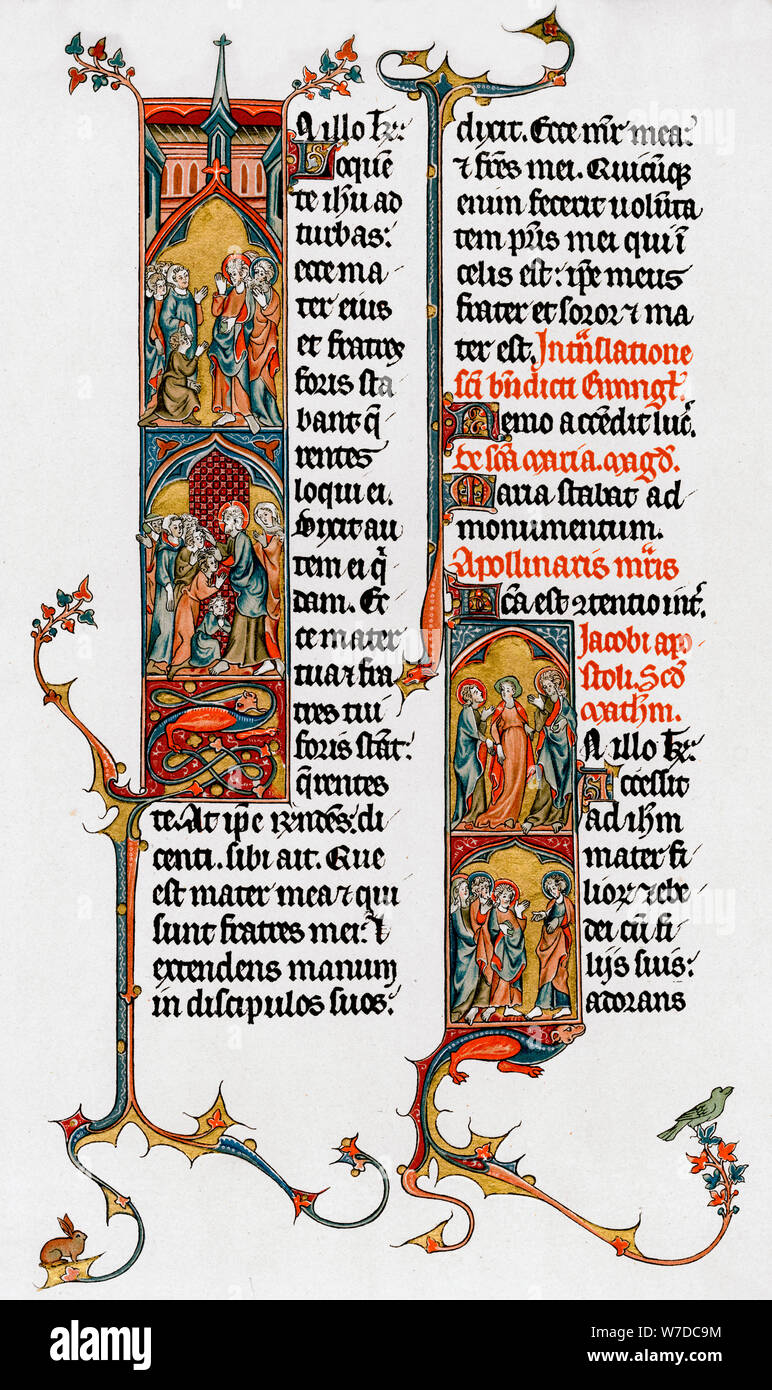 N illo tꝑe:
Loquen
te ihu ad
turbas:
ecce ma
ter eius
et fratres
foris sta
bant q̄
rentes
loqui ei.
Dixit au
tem ei q̄
dam. Ec
ce mater
tua ⁊ fra
tres tui
foris stāt:
q̄rentes
te. At ip̄e rn̄dēs: di
centi. sibi ait. Que
est mater mea ⁊ qui
sunt fratres mei: ⁊
extendens manum
in discipulos suos:
dixit. Ecce mr̄ mea:
⁊ fr̄es mei. Quicūq̨
enim fecerit uolūta
tem pr̄is mei qui ī
celis est: ip̄e meus
frater et soror ⁊ ma
ter est. In trāslatione
sc̄i bn̄dicti Ewangl̄.
Nemo accēdit luc̄.
De sc̄a Maria. Magd̄.
Maria stabat ad
monumentum.
Apollinaris mr̄is
ca est ꝯtentio int̄.
Jacobi apo
stoli. Sc̄d
Math̄m.
N illo tꝑe:
Accessit
ad ih̄m
mater fi
lioꝝ zebe
dei cū fi
lijs suis:
adorans
alamy
alamy
Image ID: W7DC9M
www.alamy.com